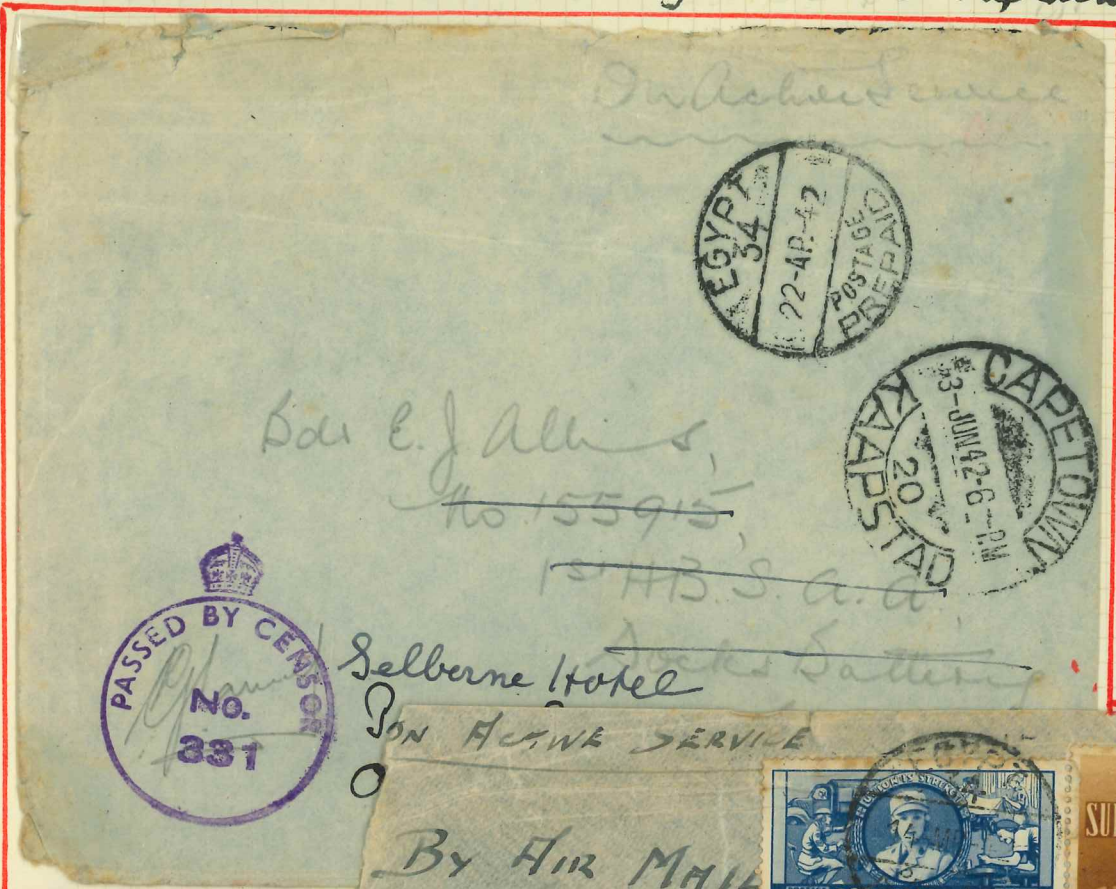 On Active Service
EGYPT
34
22-AP.-42
POSTAGE
PREPAID
CAPETOWN
3-JUN 42-6-PM
20
KAAPSTAD
Bdr E. J
No 155915,
1st H.B. S.A.A
Docks Battery
PASSED BY CENSOR
No.
331
Selborne Hotel
ON ACTIVE SERVICE
BY AIR MAIL
EGYPT
SU